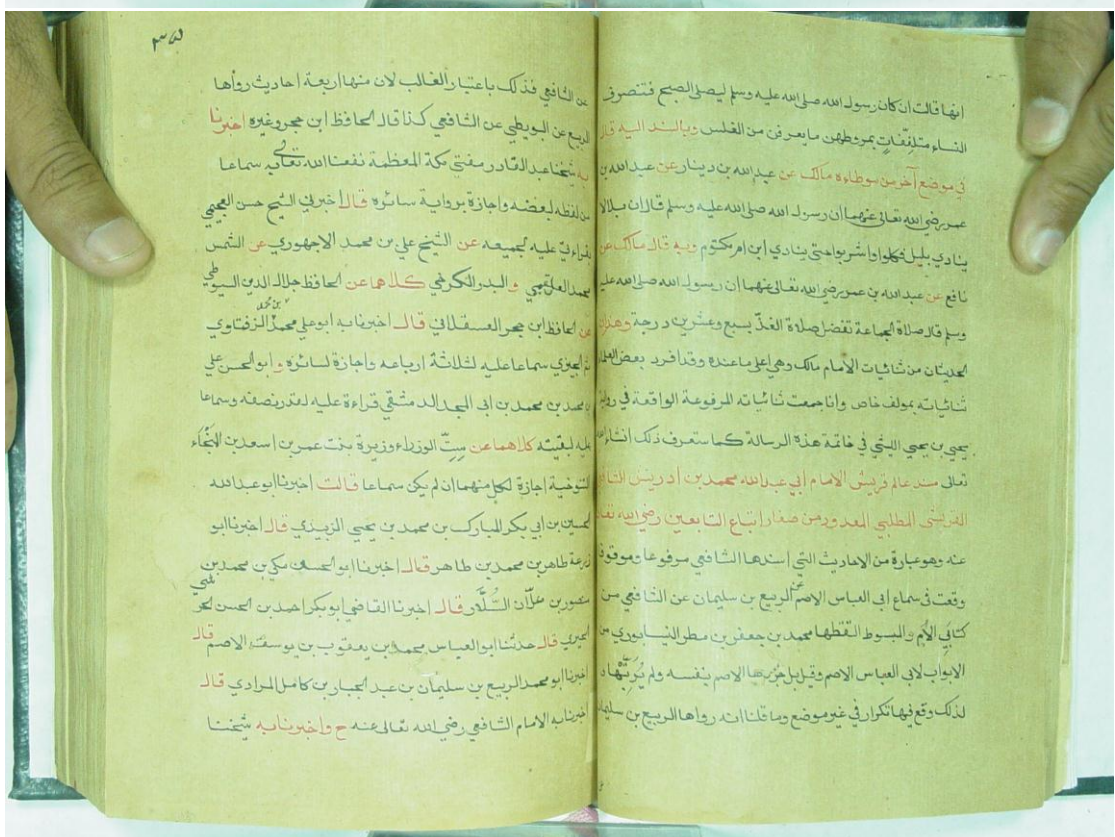 انها قالت ان كان رسول الله صلى الله عليه وسلم ليصلى الصبح فتنصرف
النساء متلفِّفاتٍ بمروطهن ما يعرفن من الغلس وبالسند اليه قال
في موضع آخر من موطاءه مالك عن عبد الله بن دينار عن عبد الله بن
عمر رضي الله تعالى عنهما ان رسول الله صلى الله عليه وسلم قال ان بلالا
ينادي بليل فكلوا واشربوا حتى ينادي ابن ام مكتوم وبه قال مالك عن
نافع عن عبد الله بن عمر رضي الله تعالى عنهما ان رسول الله صلى الله عليه
وسلم قال صلاة الجماعة تفضل صلاة الفذّ بسبع وعشرين درجة وهذان
الحديثان من ثنائيات الامام مالك وهي اعلى ما عنده وقد افرد بعض العلماء
ثنائياته بمولف خاص وانا جمعت ثنائياته المرفوعة الواقعة في رواية
يحيى بن يحيى الليثي في خاتمة هذه الرسالة كما ستعرف ذلك انشاء الله
تعالى مسند عالم قريش الامام ابي عبد الله محمد بن ادريس الشافعي
القرشي المطلبي المعدود من صغار اتباع التابعين رضي الله تعالى
عنه وهو عبارة من الاحاديث التي اسندها الشافعي مرفوعا وموقوفا
وقعت في سماع ابي العباس الاصم عن الربيع بن سليمان عن الشافعي من
كتابَي الأم والمبسوط التقطها محمد بن جعفر بن مطر النيسابوري من
الابواب لابي العباس الاصم وقيل بل جردها الاصم بنفسه ولم يُرَتِّبْها
لذلك وقع فيها تكرار في غير موضع وما قلنا انه رواها الربيع بن سليمان
٣٥
عن الشافعي فذلك باعتبار الغالب لان منها اربعة احاديث رواها
الربيع عن البويطي عن الشافعي كذا قال الحافظ ابن حجر وغيره اخبرنا
به شيخنا عبد القادر مفتي مكة المعظمة نفعنا الله تعالى به سماعا
من لفظه لبعضه واجازة برواية سائره قال اخبرني الشيخ حسن العجيمي
بقراءتي عليه لجميعه عن الشيخ علي بن محمد الاجهوري عن الشمس
محمد العلقمي و البدر الكرخي كلاهما عن الحافظ جلال الدين السيوطي
عن الحافظ ابن حجر العسقلاني قال اخبرنا به ابو علي محمد بن محمد الزفتاوي
ثم الجيزي سماعا عليه لثلاثة ارباعه واجازة لسائره و ابو الحسن علي
بن محمد بن محمد بن ابي المجد الدمشقي قراءة عليه لقدر نصفه وسماعا
عليه لبقيته كلاهما عن سِتّ الوزراء وزيرة بنت عمر بن اسعد بن المُنَجَّاء
التنوخية اجازة لكل منهما ان لم يكن سماعا قالت اخبرنا ابو عبد الله
الحسين بن ابي بكر المبارك بن محمد بن يحيى الزبيدي قال اخبرنا ابو
زرعة طاهر بن محمد بن طاهر قال اخبرنا ابو الحسن مكي بن محمد بن
منصور بن علّان السُّلَّار قال اخبرنا القاضي ابو بكر احمد بن الحسن
الحيري قال حدثنا ابو العباس محمد بن يعقوب بن يوسف الاصم قال
اخبرنا ابو محمد الربيع بن سليمان بن عبد الجبار بن كامل المرادي قال
اخبرنا به الامام الشافعي رضي الله تعالى عنه ح واخبرنا به شيخنا